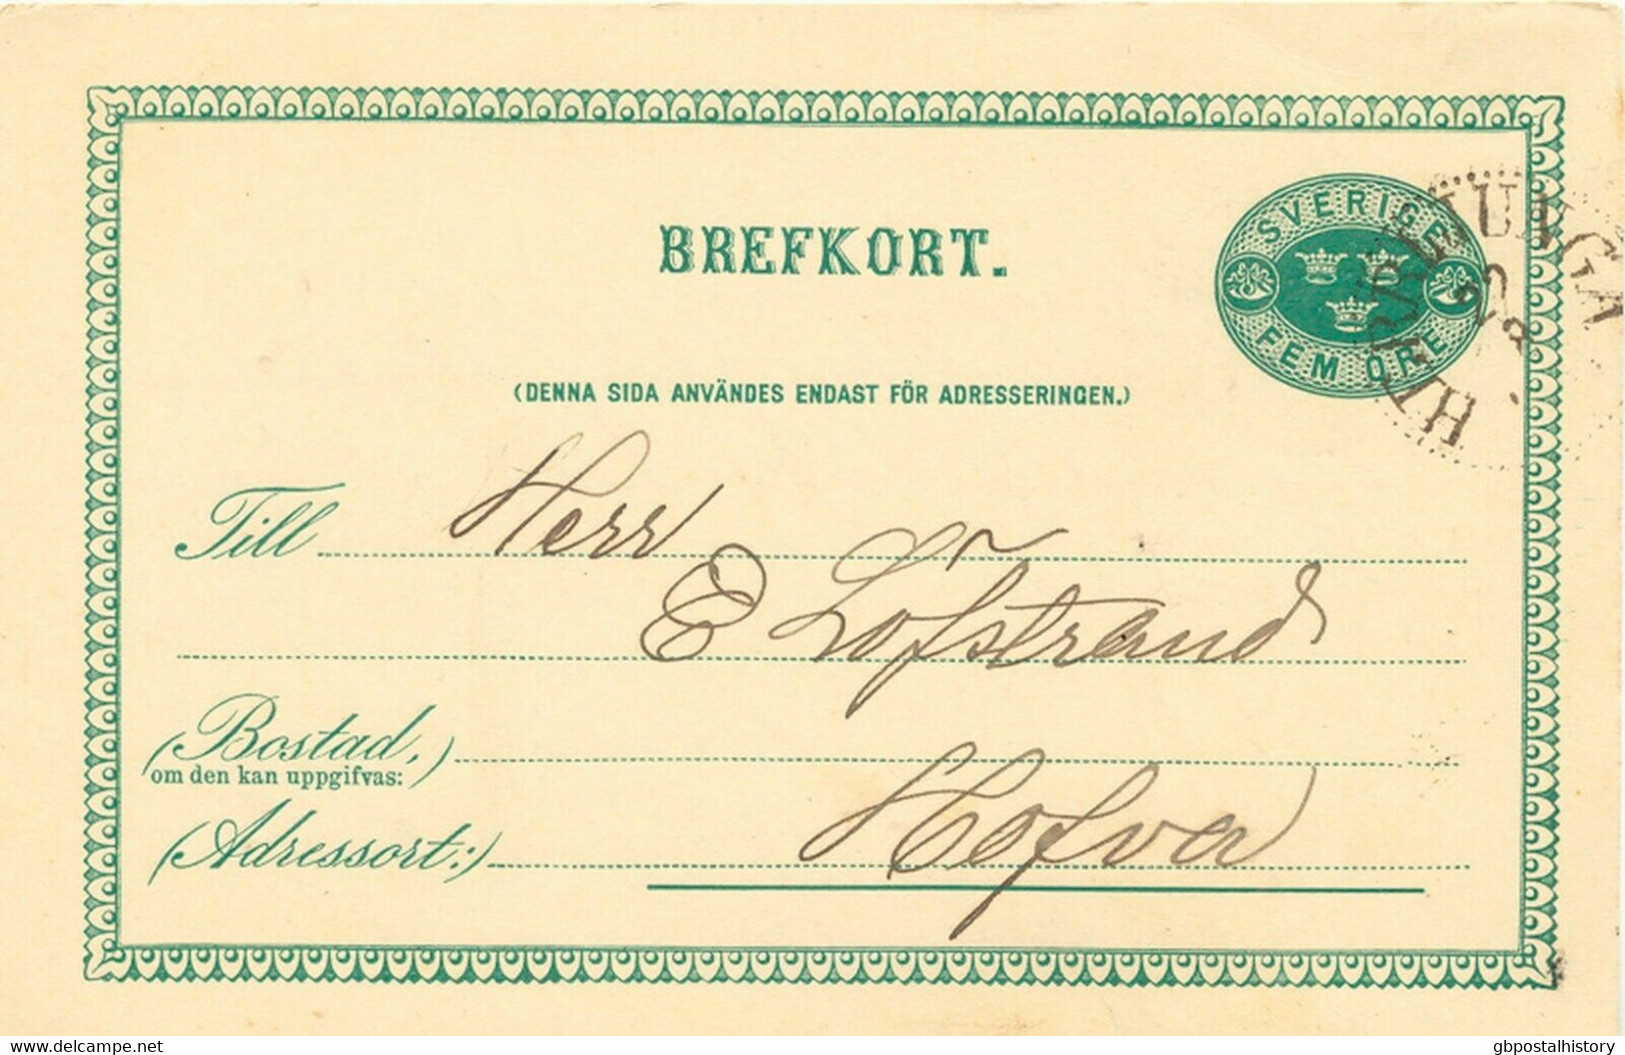 BREFKORT.
SVERIGE
FEM ÖRE
(DENNA SIDA ANVÄNDES ENDAST FÖR ADRESSERINGEN.)
Till Herr
E Löfstrand
(Bostad,)
om den kan uppgifvas:
(Adressort:) Hofva
www.delcampe.net
gbpostalhistory